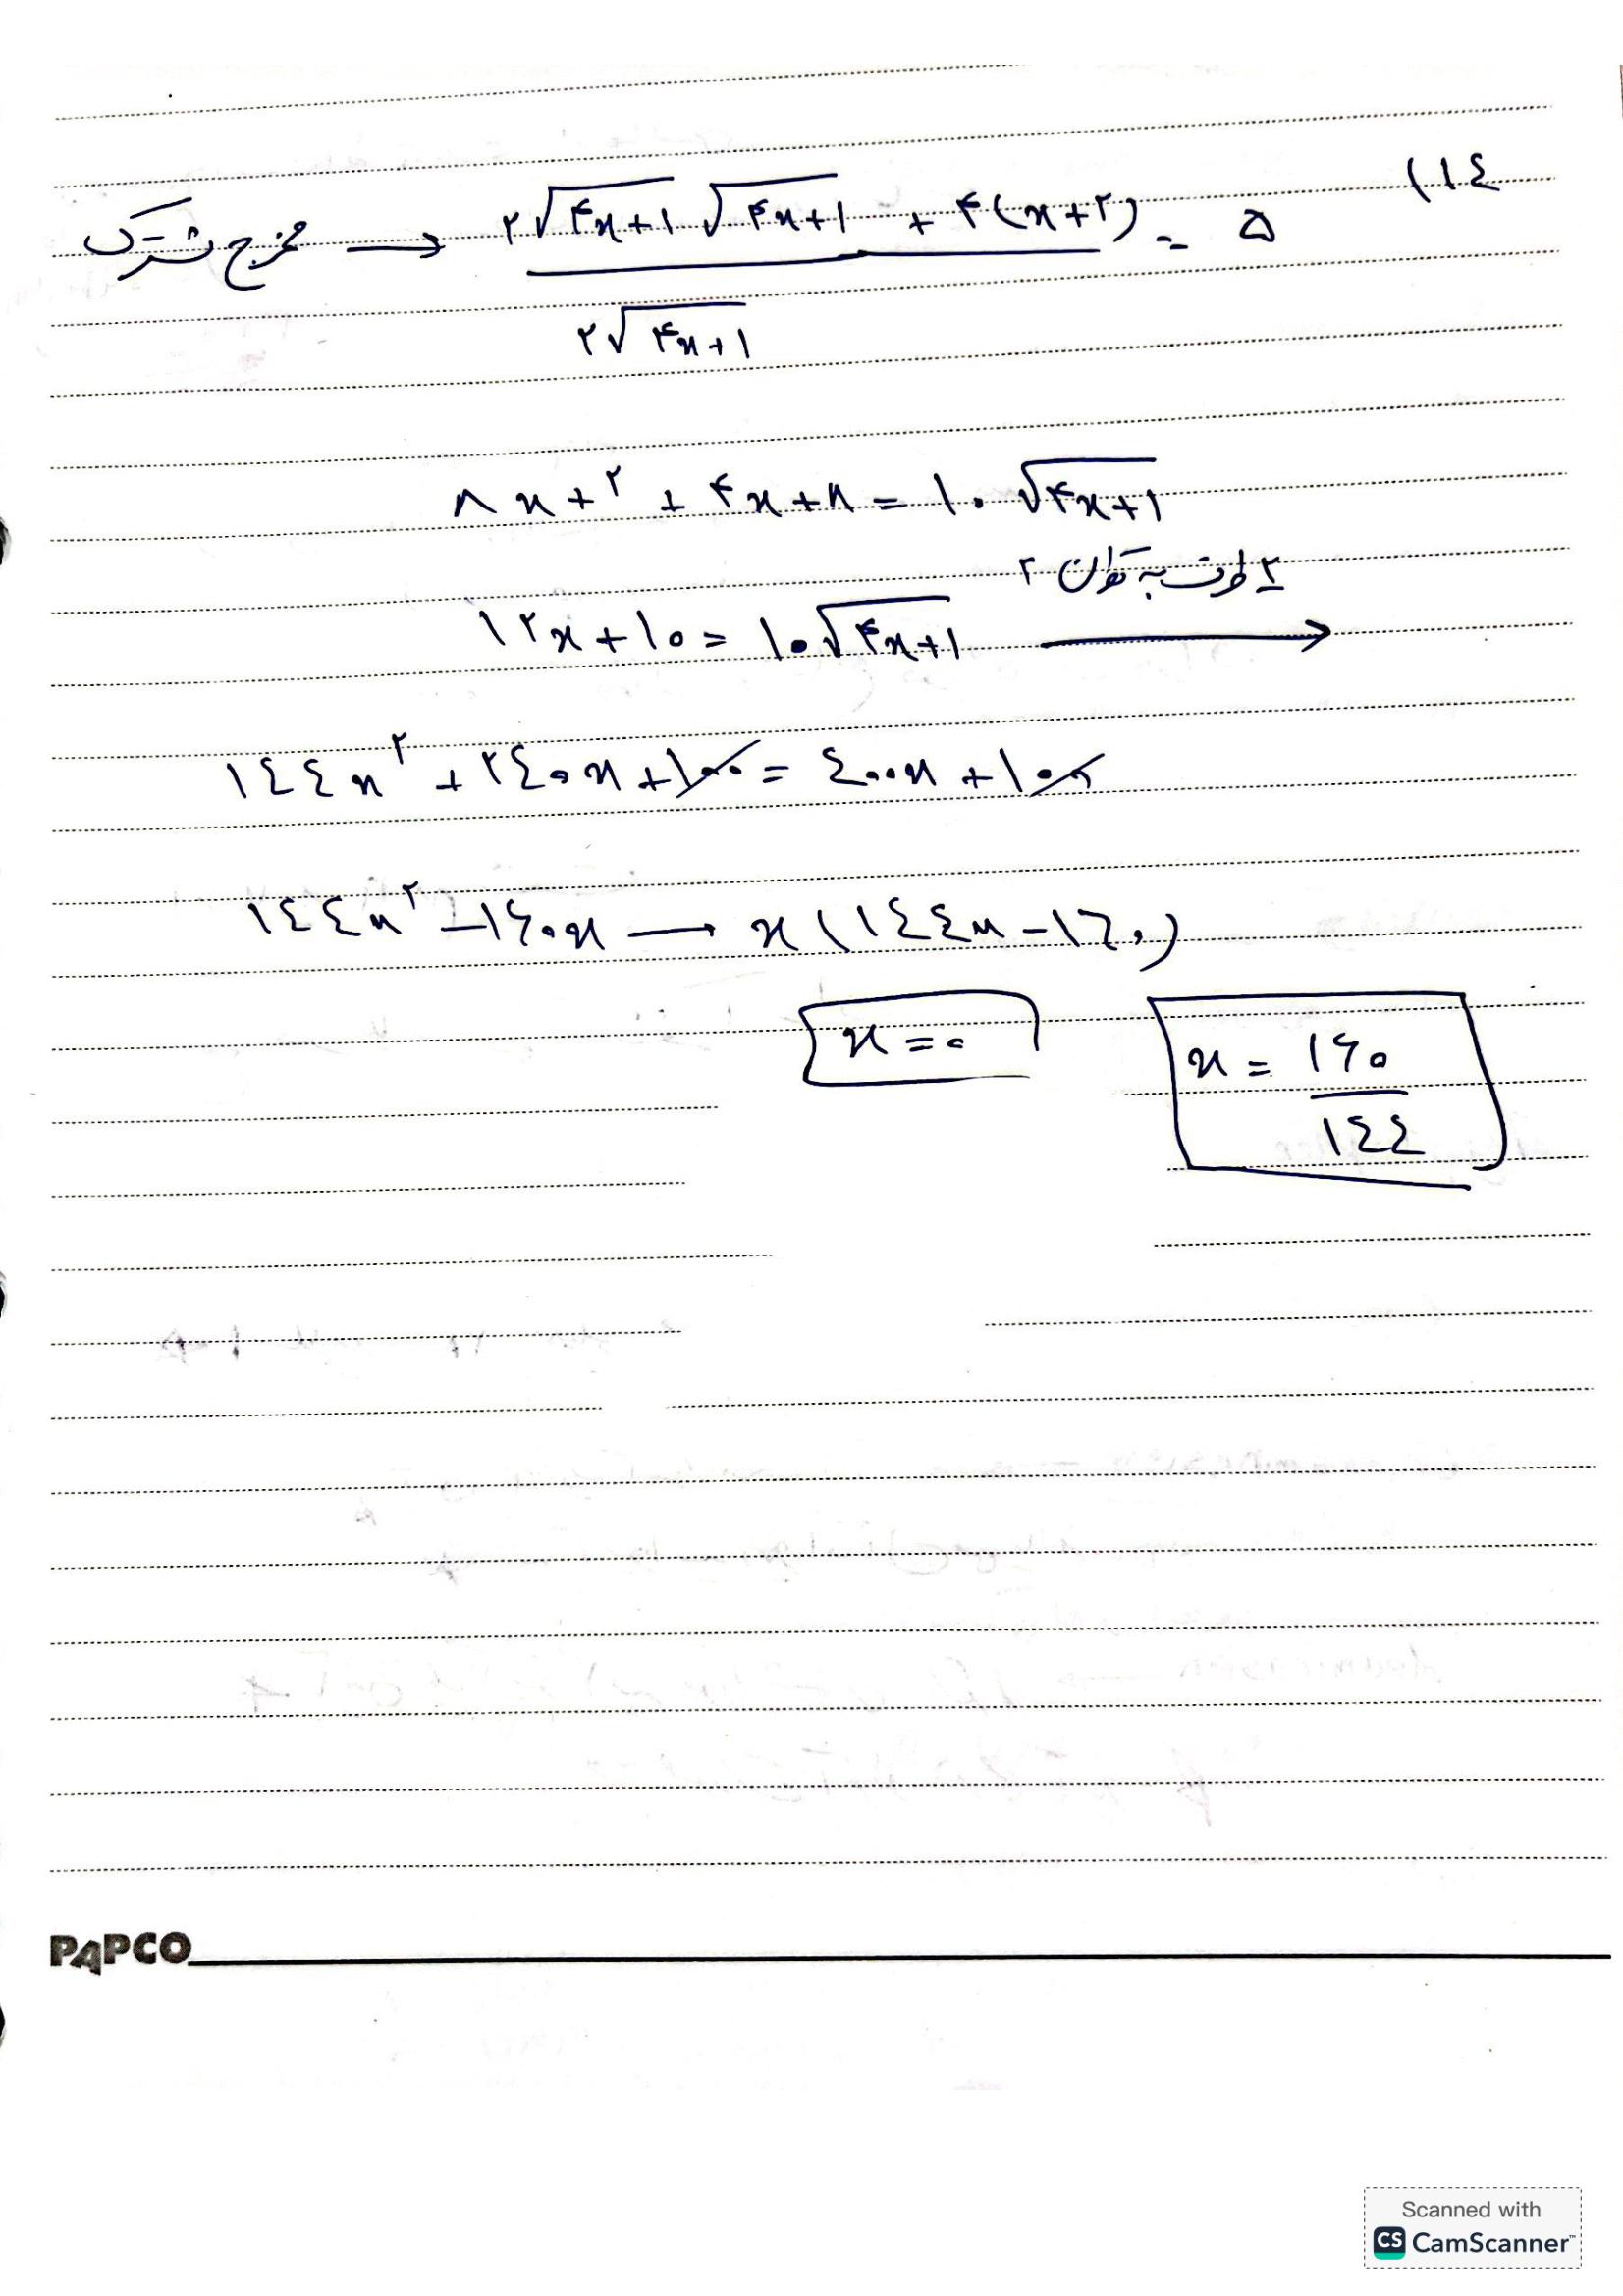 ۱۴)
مخرج مشترک → (۲√(۴x+۱) √(۴x+۱) + ۴(x+۲)) / (۲√(۴x+۱)) = ۵
۸x+۲ + ۴x+۸ = ۱۰√(۴x+۱)
۲ طرف به توان ۲
۱۲x+۱۰ = ۱۰√(۴x+۱) →
۱۴۴x² + ۲۴۰x + ۱۰۰ = ۴۰۰x + ۱۰۰
۱۴۴x² − ۱۶۰x → x(۱۴۴x − ۱۶۰)
x = ۰
x = ۱۶۰/۱۴۴
PAPCO
Scanned with
CS CamScanner™